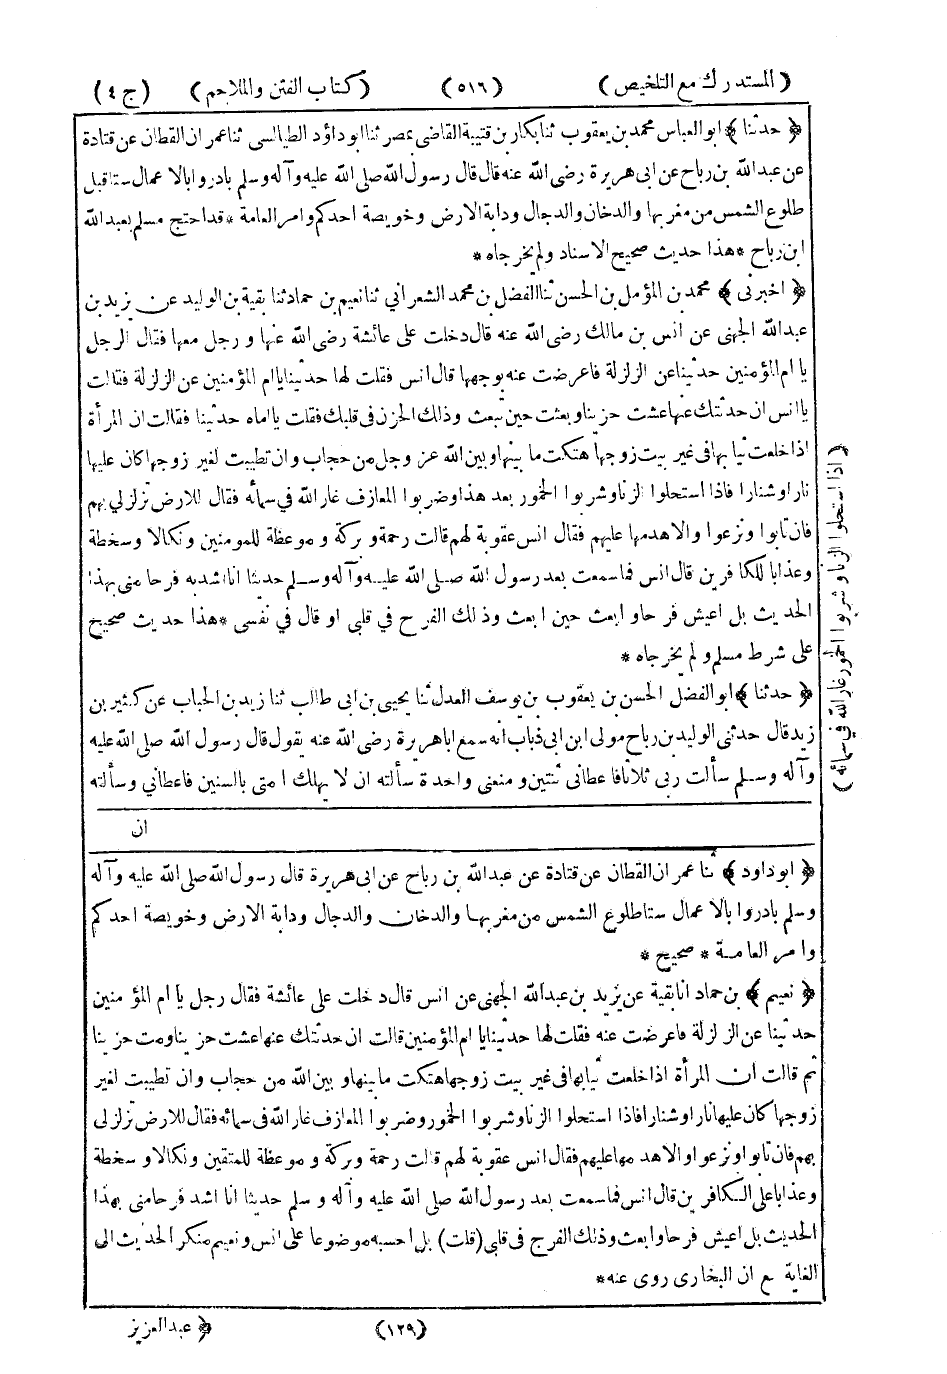 (المستدرك مع التلخيص) (٥١٦) (كتاب الفتن والملاحم) (ج ٤)
﴿ حدثنا ﴾ ابو العباس محمد بن يعقوب ثنا بكار بن قتيبة القاضى بمصر ثنا ابو داؤد الطيالسى ثنا عمران القطان عن قتادة
عن عبدالله بن رباح عن ابى هريرة رضى الله عنه قال قال رسول الله صلى الله عليه وآله وسلم بادروا بالاعمال ستا قبل
طلوع الشمس من مغربها والدخان والدجال ودابة الارض وخويصة احدكم وامر العامة * قد احتج مسلم بعبدالله
ابن رباح * هذا حديث صحيح الاسناد ولم يخرجاه *
﴿ اخبرنى ﴾ محمد بن المؤمل بن الحسن ثنا الفضل بن محمد الشعراني ثنا نعيم بن حماد ثنا بقية بن الوليد عن يزيد بن
عبدالله الجهنى عن انس بن مالك رضى الله عنه قال دخلت على عائشة رضى الله عنها و رجل معها فقال الرجل
يا ام المؤمنين حدثينا عن الزلزلة فاعرضت عنه بوجهها قال انس فقلت لها حدثينا يا ام المؤمنين عن الزلزلة فقالت
يا انس ان حدثتك عنها عشت حزينا وبعثت حين تبعث وذلك الحزن فى قلبك فقلت يا اماه حدثينا فقالت ان المرأة
اذا خلعت ثيابها فى غير بيت زوجها هتكت ما بينها وبين الله عز وجل من حجاب وان تطيبت لغير زوجها كان عليها
نارا وشنارا فاذا استحلوا الزنا وشربوا الخمور بعد هذا وضربوا المعازف غار الله في سمائه فقال للارض تزلزلي بهم
فان تابوا ونزعوا والا هدمها عليهم فقال انس عقوبة لهم قالت رحمة و بركة و موعظة للمومنين ونكالا وسخطة
وعذابا للكافرين قال انس فما سمعت بعد رسول الله صلى الله عليه وآله وسلم حديثا انا اشد به فرحا منى بهذا
الحديث بل اعيش فرحا وابعث حين ابعث وذلك الفرح في قلبى او قال في نفسى * هذا حديث صحيح
على شرط مسلم و لم يخرجاه *
﴿ حدثنا ﴾ ابو الفضل الحسن بن يعقوب بن يوسف العدل ثنا يحيى بن ابى طالب ثنا زيد بن الحباب عن كثير بن
زيد قال حدثنى الوليد بن رباح مولى ابن ابى ذباب انه سمع اباهريرة رضى الله عنه يقول قال رسول الله صلى الله عليه
وآله وسلم سألت ربى ثلاثا فاعطانى ثنتين و منعنى واحدة سألته ان لا يهلك امتى بالسنين فاعطاني وسألته
ان
(اذا استحلوا الزنا وشربوا الخمور غار الله في سمائه)
﴿ ابو داود ﴾ ثنا عمران القطان عن قتادة عن عبدالله بن رباح عن ابى هريرة قال رسول الله صلى الله عليه وآله
وسلم بادروا بالاعمال ستا طلوع الشمس من مغربها والدخان والدجال ودابة الارض وخويصة احدكم
وامر العامة * صحيح *
﴿ نعيم ﴾ بن حماد انا بقية عن يزيد بن عبدالله الجهنى عن انس قال دخلت على عائشة فقال رجل يا ام المؤمنين
حدثينا عن الزلزلة فاعرضت عنه فقلت لها حدثينا يا ام المؤمنين قالت ان حدثتك عنها عشت حزينا ومت حزينا
ثم قالت ان المرأة اذا خلعت ثيابها فى غير بيت زوجها هتكت ما بينها و بين الله من حجاب وان تطيبت لغير
زوجها كان عليها نارا وشنارا فاذا استحلوا الزنا وشربوا الخمور وضربوا المعازف غار الله فى سمائه فقال للارض تزلزلى
بهم فان تابوا ونزعوا والا هدمها عليهم فقال انس عقوبة لهم قالت رحمة وبركة و موعظة للمتقين ونكالا و سخطة
وعذابا على الكافرين قال انس فما سمعت بعد رسول الله صلى الله عليه وآله و سلم حديثا انا اشد فرحا منى بهذا
الحديث بل اعيش فرحا وابعث وذلك الفرح فى قلبى (قلت) بل احسبه موضوعا على انس ونعيم منكر الحديث الى
الغاية مع ان البخارى روى عنه *
(١٢٩) ﴿ عبدالعزيز